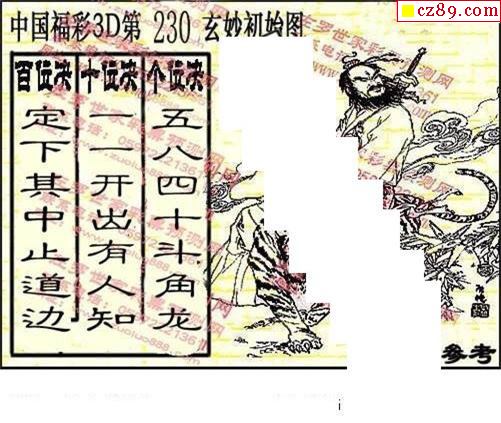 cz89.com
中国福彩3D第 230 玄妙初始图
百位决
定下其中止道边
十位决
一一开出有人知
个位决
五八四十斗角龙
参考
i